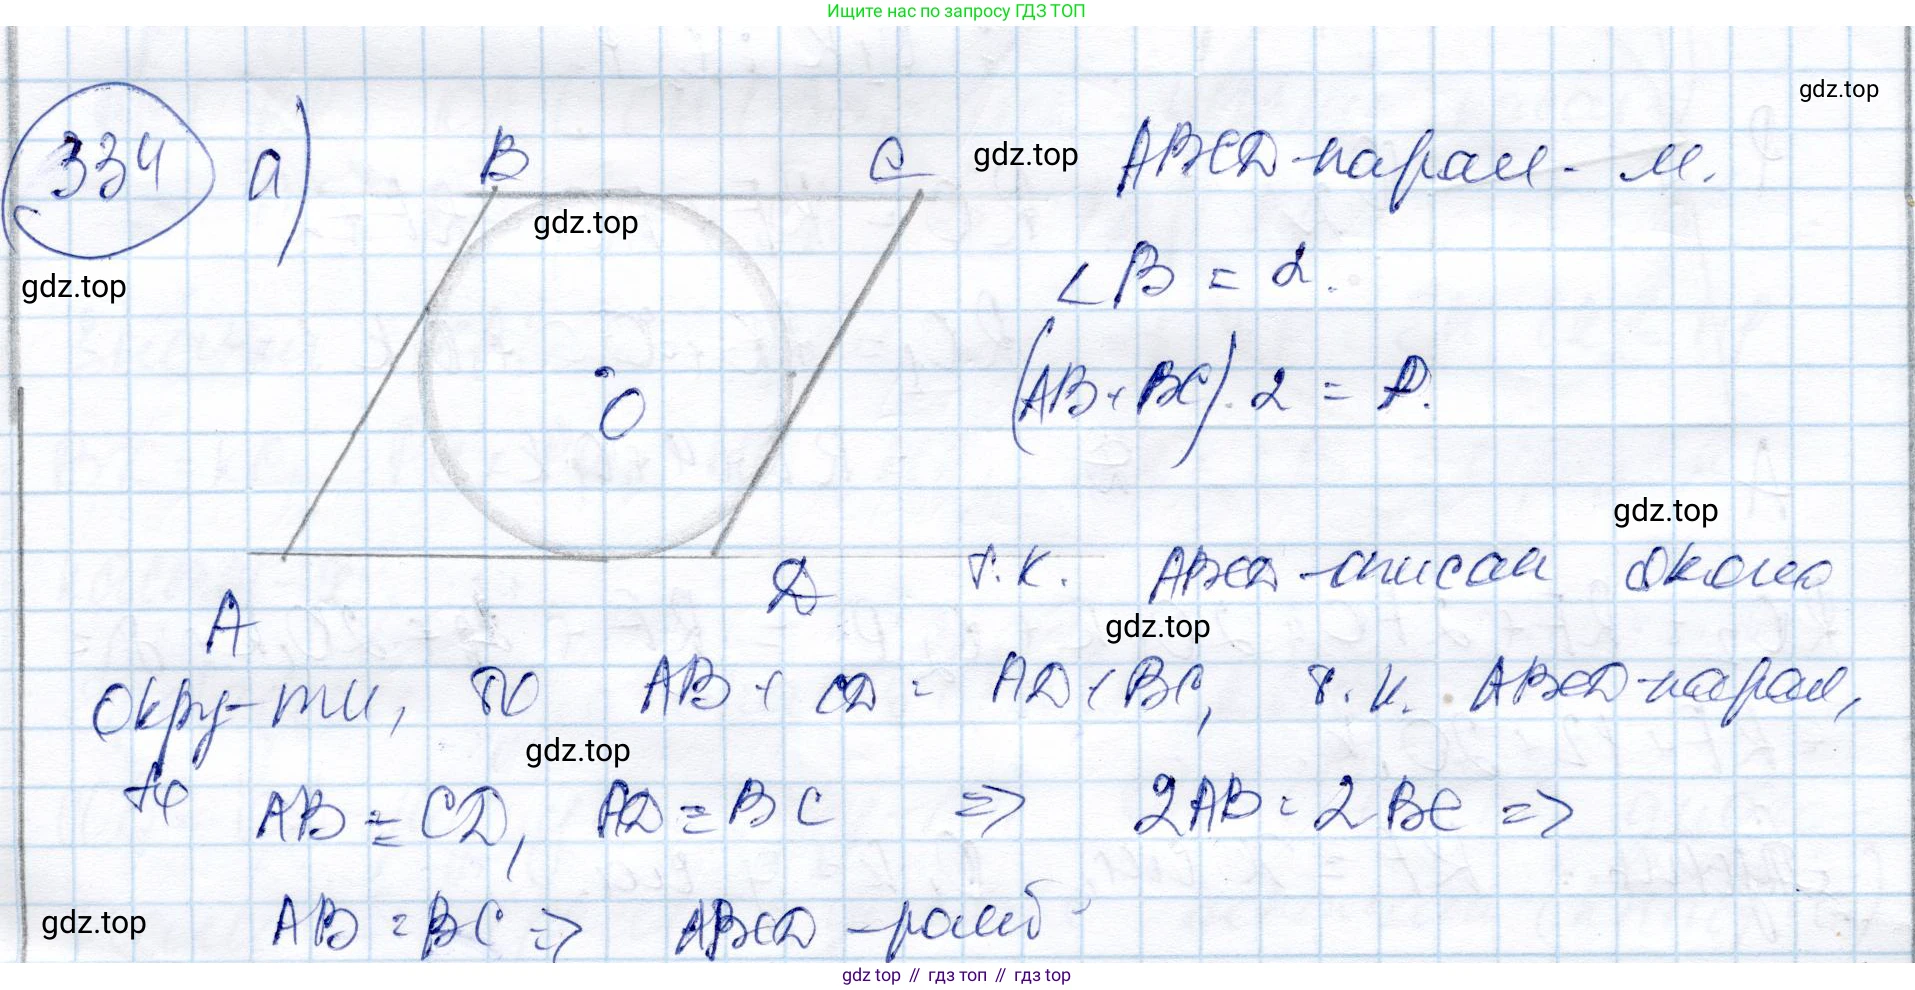 Ищите нас по запросу ГДЗ ТОП
gdz.top
334 а) B C gdz.top ABCD-парал-м.
gdz.top
gdz.top ∠B = α.
(AB + BC) · 2 = P.
O
gdz.top
A D т.к. ABCD-описан около
gdz.top
окру-ти, то AB + CD = AD + BC, т.к. ABCD-парал,
gdz.top
то AB = CD, AD = BC => 2AB = 2BC =>
gdz.top AB = BC => ABCD-ромб
gdz top // гдз топ // гдз top